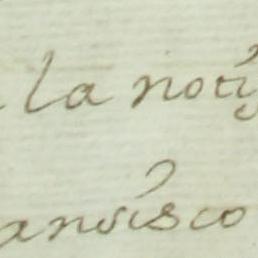 la noti
ancisco